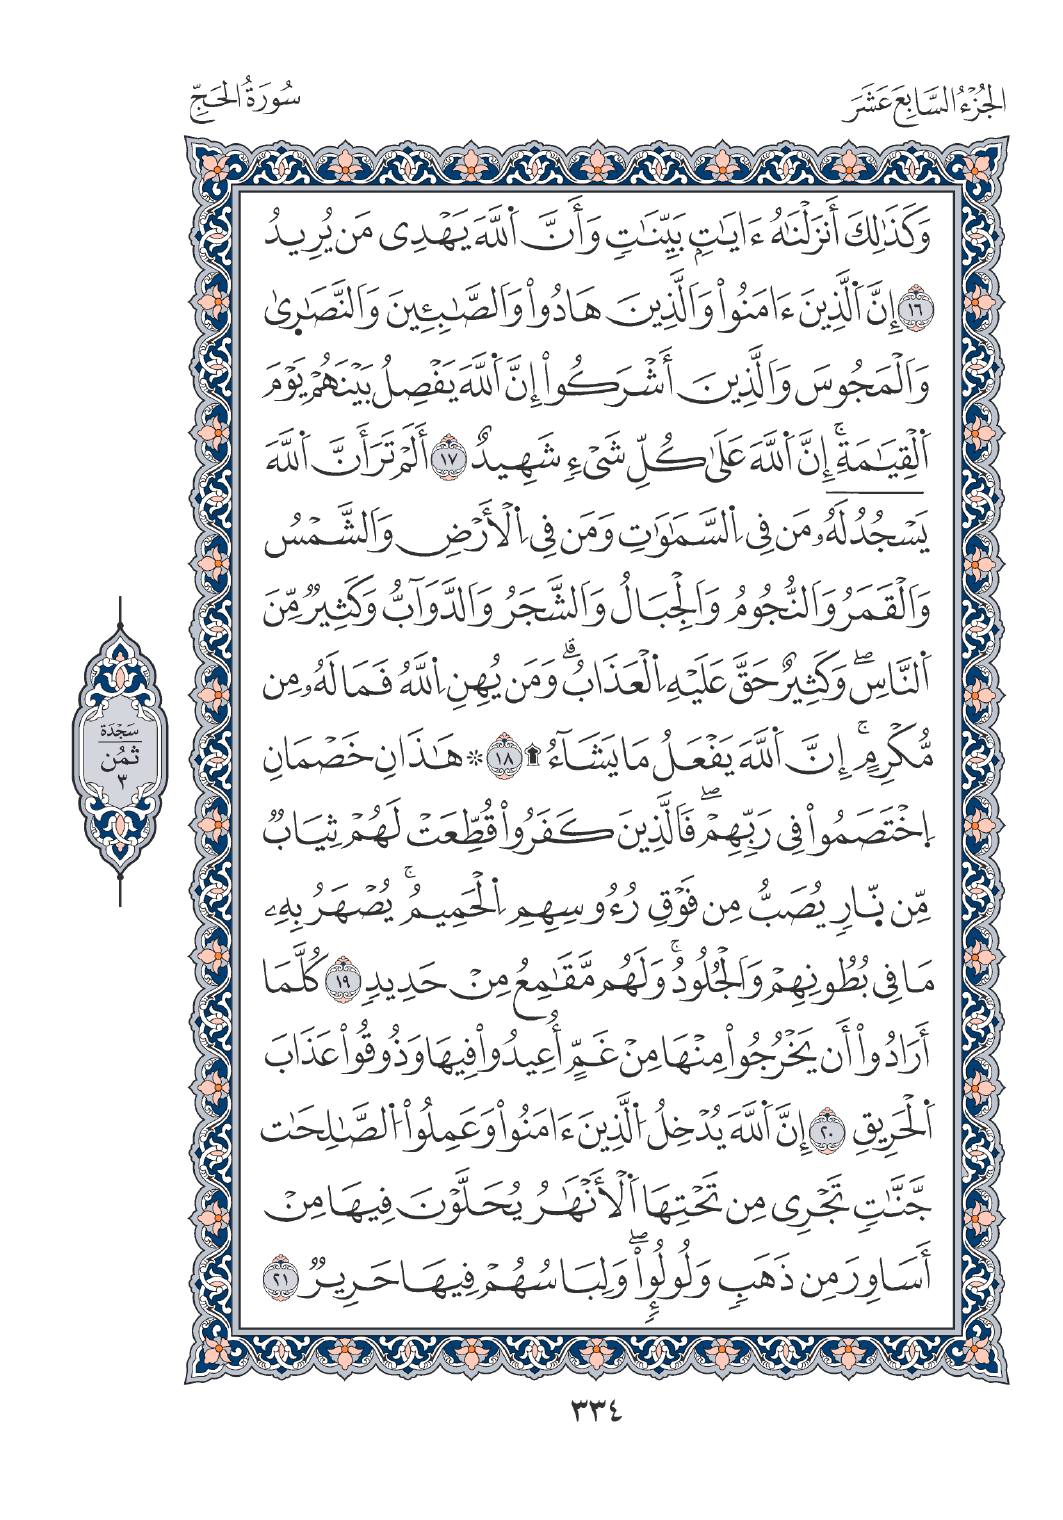 الجُزْءُ السَّابِعَ عَشَرَ
سُورَةُ الحَجّ
وَكَذَٰلِكَ أَنزَلْنَٰهُ ءَايَٰتِۢ بَيِّنَٰتٖ وَأَنَّ اَ۬للَّهَ يَهْدِى مَن يُرِيدُ
١٦ إِنَّ اَ۬لَّذِينَ ءَامَنُواْ وَالَّذِينَ هَادُواْ وَالصَّٰبِـِٕينَ وَالنَّصَٰر۪ىٰ
وَالْمَجُوسَ وَالَّذِينَ أَشْرَكُواْ إِنَّ اَ۬للَّهَ يَفْصِلُ بَيْنَهُمْ يَوْمَ
اَ۬لْقِيَٰمَةِۚ إِنَّ اَ۬للَّهَ عَلَىٰ كُلِّ شَىْءٖ شَهِيدٌ ١٧ أَلَمْ تَرَ أَنَّ اَ۬للَّهَ
يَسْجُدُ لَهُۥ مَن فِى اِ۬لسَّمَٰوَٰتِ وَمَن فِى اِ۬لْأَرْضِ وَالشَّمْسُ
وَالْقَمَرُ وَالنُّجُومُ وَالْجِبَالُ وَالشَّجَرُ وَالدَّوَآبُّ وَكَثِيرٞ مِّنَ
اَ۬لنَّاسِۖ وَكَثِيرٌ حَقَّ عَلَيْهِ اِ۬لْعَذَابُۗ وَمَن يُهِنِ اِ۬للَّهُ فَمَا لَهُۥ مِن
مُّكْرِمٍۚ إِنَّ اَ۬للَّهَ يَفْعَلُ مَا يَشَآءُ ۩ ١٨ ۞ هَٰذَانِ خَصْمَانِ
اِ۪خْتَصَمُواْ فِى رَبِّهِمْۖ فَالَّذِينَ كَفَرُواْ قُطِّعَتْ لَهُمْ ثِيَابٞ
مِّن نّ۪ارٖ يُصَبُّ مِن فَوْقِ رُءُوسِهِمِ اِ۬لْحَمِيمُۚ يُصْهَرُ بِهِۦ
مَا فِى بُطُونِهِمْ وَالْجُلُودُۚ وَلَهُم مَّقَٰمِعُ مِنْ حَدِيدٖ ١٩ كُلَّمَا
أَرَادُواْ أَن يَخْرُجُواْ مِنْهَا مِنْ غَمٍّ أُعِيدُواْ فِيهَا وَذُوقُواْ عَذَابَ
اَ۬لْحَرِيقِ ٢٠ إِنَّ اَ۬للَّهَ يُدْخِلُ اُ۬لَّذِينَ ءَامَنُواْ وَعَمِلُواْ اُ۬لصَّٰلِحَٰت
جَّنَّٰتٖ تَجْرِى مِن تَحْتِهَا اَ۬لْأَنْهَٰرُ يُحَلَّوْنَ فِيهَا مِنْ
أَسَاوِرَ مِن ذَهَبٖ وَلُولُوٕٖاْۖ وَلِبَاسُهُمْ فِيهَا حَرِيرٞ ٢١
سَجْدَة
ثُمُن
٣
٣٣٤